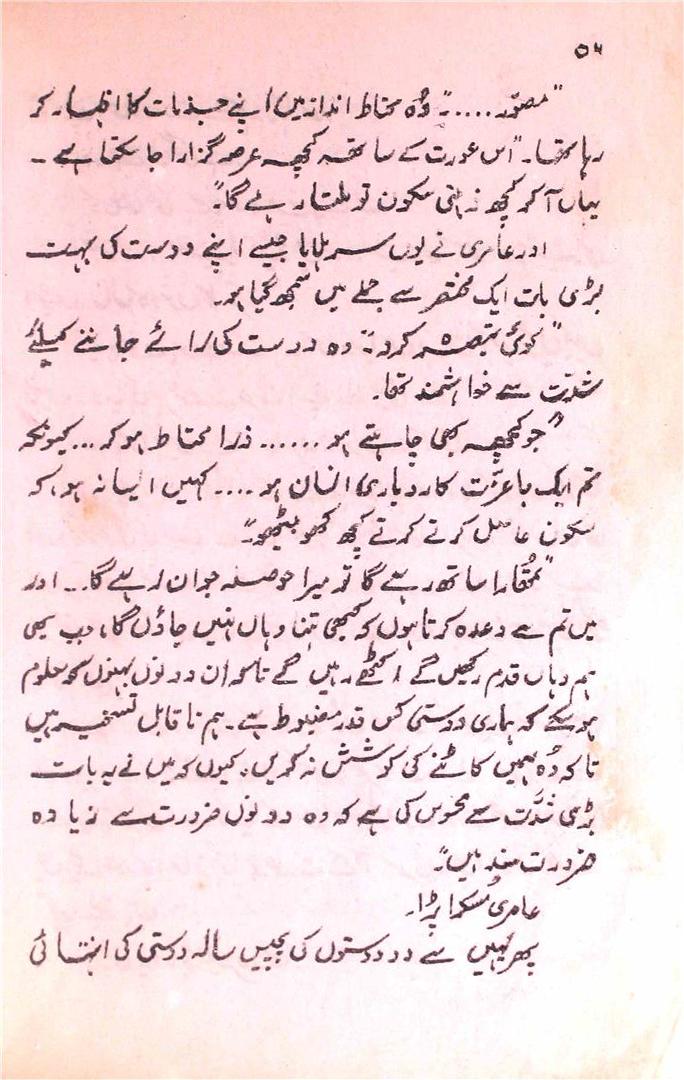 ۵۶
"مصور....." وُہ محتاط انداز میں اپنے جذبات کا اظہار کر
رہا تھا۔ "اس عورت کے ساتھ کچھ عرصہ گزارا جا سکتا ہے ۔
یہاں آ کر کچھ ذہنی سکون تو ملتا رہے گا"۔
اور عامری نے یوں سر ہلایا جیسے اپنے دوست کی بہت
بڑی بات ایک مختصر سے جملے میں سمجھ گیا ہو۔
"کوئی تبصرہ کرو"۔ وہ دوست کی رائے جاننے کیلئے
شدّت سے خواہشمند تھا۔
"جو کچھ بھی چاہتے ہو ...... ذرا محتاط ہو کر... کیونکہ
تم ایک باعزّت کاروباری انسان ہو .... کہیں ایسا نہ ہو، کہ
سکون حاصل کرتے کرتے کچھ کھو بیٹھو"۔
"تمھُارا ساتھ رہے گا تو میرا حوصلہ جوان رہے گا... اور
میں تم سے وعدہ کرتا ہوں کہ کبھی تنہا وہاں نہیں جاؤں گا، جب بھی
ہم وہاں قدم رکھیں گے اکٹھے رہیں گے تاکہ ان دونوں بہنوں کو معلوم
ہو سکے کہ ہماری دوستی کس قدر مضبوط ہے۔ ہم ناقابل تسخیر ہیں
تاکہ وُہ ہمیں کاٹنے کی کوشش نہ کریں، کیوں کہ میں نے یہ بات
بڑی شدّت سے محسوس کی ہے کہ وہ دونوں ضرورت سے زیادہ
ضرورت مند ہیں"۔
عامری مُسکرا پڑا۔
پھر یہیں سے دو دوستوں کی پچیس سالہ دوستی کی انتہائی